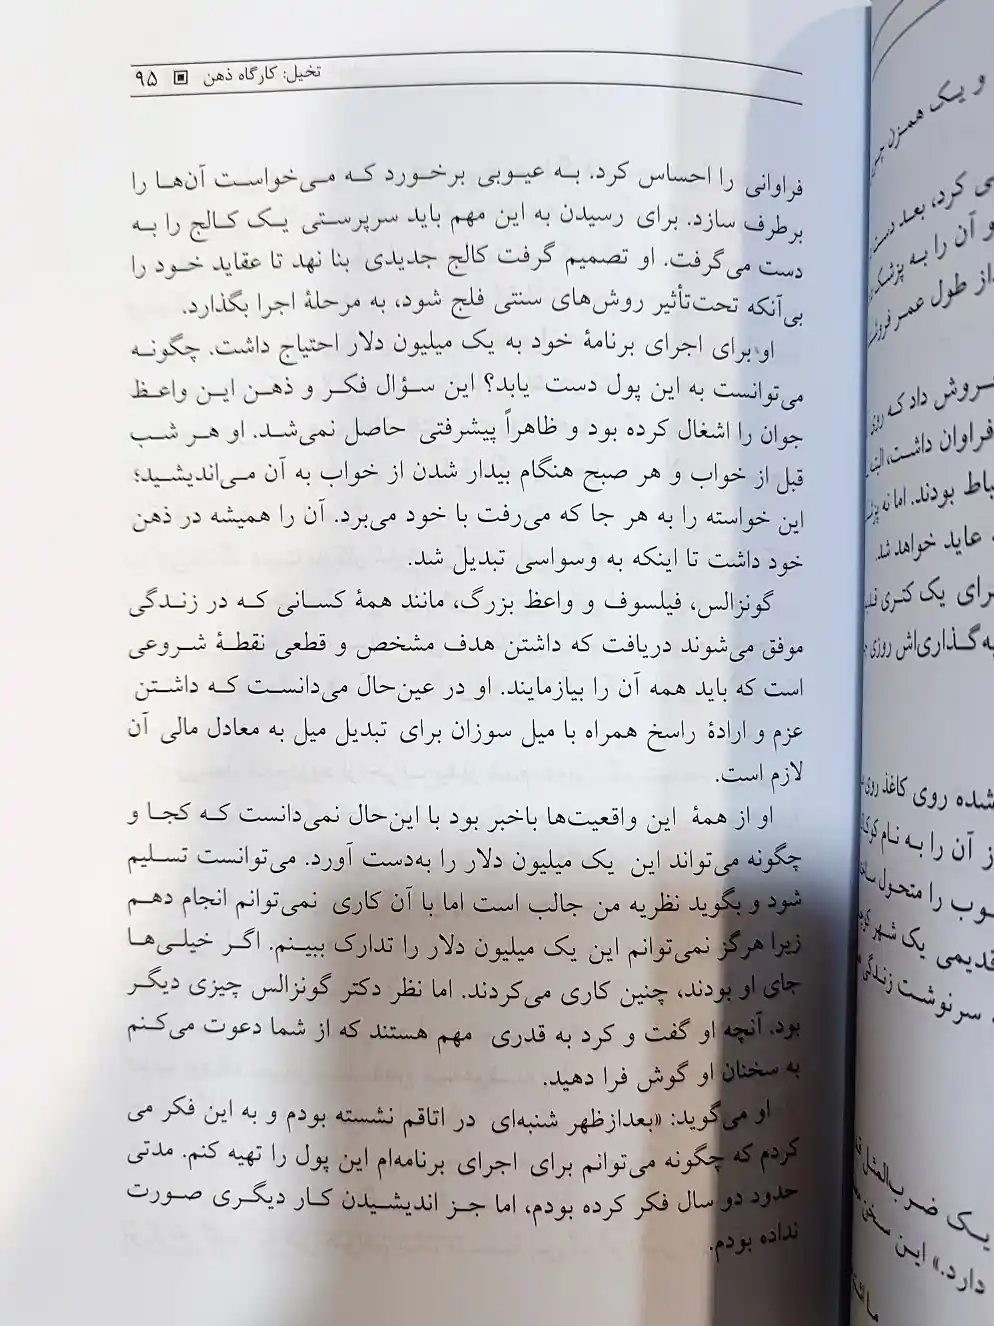 تخیل: کارگاه ذهن ▣ ۹۵
فراوانی را احساس کرد. به عیوبی برخورد که می‌خواست آن‌ها را
برطرف سازد. برای رسیدن به این مهم باید سرپرستی یک کالج را به
دست می‌گرفت. او تصمیم گرفت کالج جدیدی بنا نهد تا عقاید خود را
بی‌آنکه تحت‌تأثیر روش‌های سنتی فلج شود، به مرحلهٔ اجرا بگذارد.
او برای اجرای برنامهٔ خود به یک میلیون دلار احتیاج داشت. چگونه
می‌توانست به این پول دست یابد؟ این سؤال فکر و ذهن این واعظ
جوان را اشغال کرده بود و ظاهراً پیشرفتی حاصل نمی‌شد. او هر شب
قبل از خواب و هر صبح هنگام بیدار شدن از خواب به آن می‌اندیشید؛
این خواسته را به هر جا که می‌رفت با خود می‌برد. آن را همیشه در ذهن
خود داشت تا اینکه به وسواسی تبدیل شد.
گونزالس، فیلسوف و واعظ بزرگ، مانند همهٔ کسانی که در زندگی
موفق می‌شوند دریافت که داشتن هدف مشخص و قطعی نقطهٔ شروعی
است که باید همه آن را بیازمایند. او در عین‌حال می‌دانست که داشتن
عزم و ارادهٔ راسخ همراه با میل سوزان برای تبدیل میل به معادل مالی آن
لازم است.
او از همهٔ این واقعیت‌ها باخبر بود با این‌حال نمی‌دانست که کجا و
چگونه می‌تواند این یک میلیون دلار را به‌دست آورد. می‌توانست تسلیم
شود و بگوید نظریه من جالب است اما با آن کاری نمی‌توانم انجام دهم
زیرا هرگز نمی‌توانم این یک میلیون دلار را تدارک ببینم. اگر خیلی‌ها
جای او بودند، چنین کاری می‌کردند. اما نظر دکتر گونزالس چیزی دیگر
بود. آنچه او گفت و کرد به قدری مهم هستند که از شما دعوت می‌کنم
به سخنان او گوش فرا دهید.
او می‌گوید: «بعدازظهر شنبه‌ای در اتاقم نشسته بودم و به این فکر می
کردم که چگونه می‌توانم برای اجرای برنامه‌ام این پول را تهیه کنم. مدتی
حدود دو سال فکر کرده بودم، اما جز اندیشیدن کار دیگری صورت
نداده بودم.
و یک همزن
می کرد، بعد دست
و آن را به پزشک
از طول عمر
فروش داد که روزی
فراوان داشت، البته
بودند. اما نه
عاید خواهد شد.
برای یک کتری
روزی
شده روی کاغذ روی
از آن را به نام
را متحول
قدیمی یک شهر
سرنوشت زندگی
یک ضرب‌المثل
دارد.» این سخن
ما